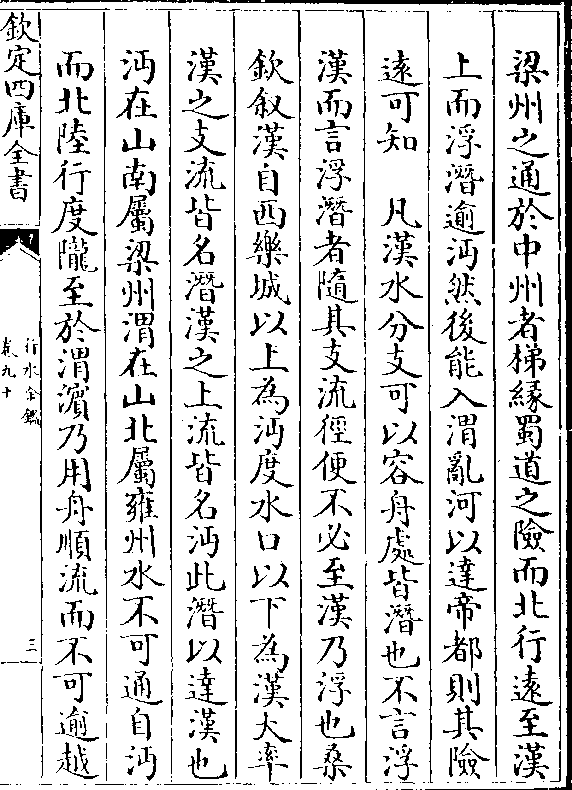 梁州之通於中州者梯緣蜀道之險而北行遠至漢
上而浮潛逾沔然後能入渭亂河以達帝都則其險
遠可知　凡漢水分支可以容舟處皆潛也不言浮
漢而言浮潛者隨其支流徑便不必至漢乃浮也桑
欽叙漢自西樂城以上為沔度水口以下為漢大率
漢之支流皆名潛漢之上流皆名沔此潛以達漢也
沔在山南屬梁州渭在山北屬雍州水不可通自沔
而北陸行度隴至於渭濵乃用舟順流而不可逾越
欽定四庫全書
行水金鑑
卷九十
三